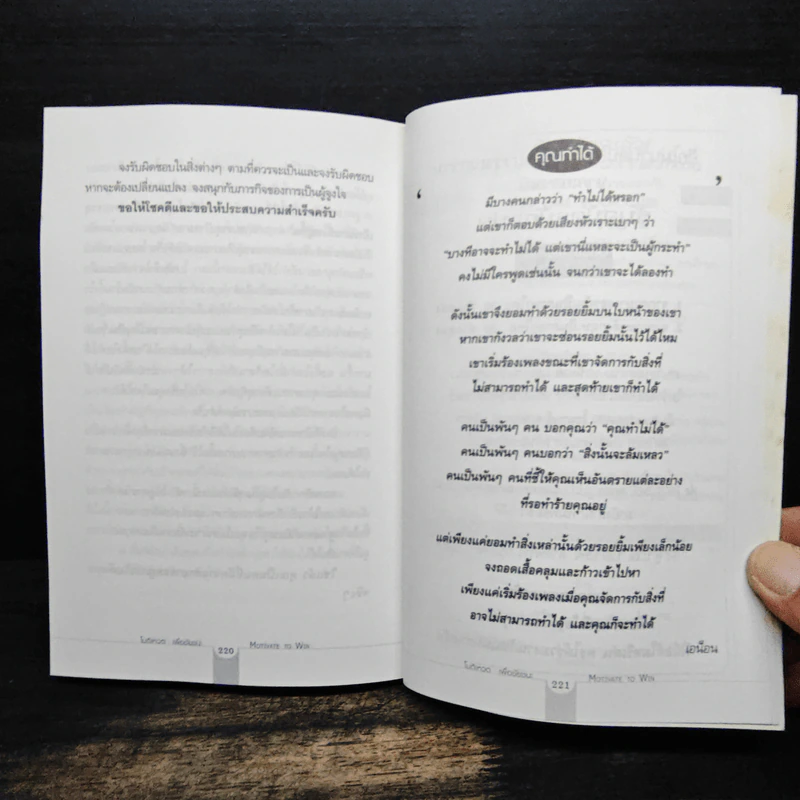 จงรับผิดชอบในสิ่งต่างๆ ตามที่ควรจะเป็นและจงรับผิดชอบ
หากจะต้องเปลี่ยนแปลง จงสนุกกับภารกิจของการเป็นผู้จูงใจ
ขอให้โชคดีและขอให้ประสบความสำเร็จครับ
220
MOTIVATE TO WIN
คุณทำได้
‘
’
มีบางคนกล่าวว่า “ทำไม่ได้หรอก”
แต่เขาก็ตอบด้วยเสียงหัวเราะเบาๆ ว่า
“บางทีอาจจะทำไม่ได้ แต่เขานี่แหละจะเป็นผู้กระทำ”
คงไม่มีใครพูดเช่นนั้น จนกว่าเขาจะได้ลองทำ
ดังนั้นเขาจึงยอมทำด้วยรอยยิ้มบนใบหน้าของเขา
หากเขากังวลว่าเขาจะซ่อนรอยยิ้มนั้นไว้ได้ไหม
เขาเริ่มร้องเพลงขณะที่เขาจัดการกับสิ่งที่
ไม่สามารถทำได้ และสุดท้ายเขาก็ทำได้
คนเป็นพันๆ คน บอกคุณว่า “คุณทำไม่ได้”
คนเป็นพันๆ คนบอกว่า “สิ่งนั้นจะล้มเหลว”
คนเป็นพันๆ คนที่ชี้ให้คุณเห็นอันตรายแต่ละอย่าง
ที่รอทำร้ายคุณอยู่
แต่เพียงแค่ยอมทำสิ่งเหล่านั้นด้วยรอยยิ้มเพียงเล็กน้อย
จงถอดเสื้อคลุมและก้าวเข้าไปหา
เพียงแค่เริ่มร้องเพลงเมื่อคุณจัดการกับสิ่งที่
อาจไม่สามารถทำได้ และคุณก็จะทำได้
เอน็อน
221
MOTIVATE TO WIN